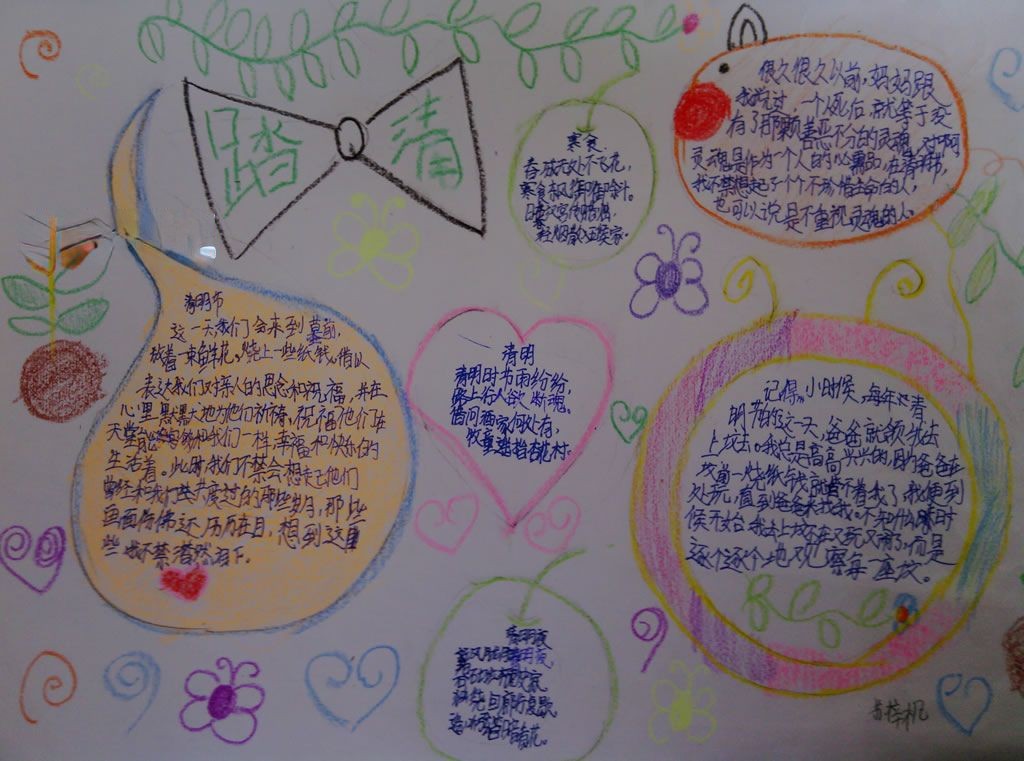 踏青
寒食
春城无处不飞花,
寒食东风御柳斜。
日暮汉宫传蜡烛,
轻烟散入五侯家
很久很久以前,妈妈跟
我说过,一个人死后,就等于没
有了那颗善恶不分的灵魂,对啊
灵魂是作为一个人的必需品,在清明节,
我不禁想起了个个不珍惜生命的人,
也可以说是不重视灵魂的人。
清明节
这一天,我们会来到墓前,
放着一束鲜花。烧上一些纸钱,借以
表达我们对亲人的思念和祝福,并在
心里默默地为他们祈祷,祝福他们在
天堂能够和我们一样幸福和快乐的
生活着。此时我们不禁会想起他们
曾经和我们共度过的那些岁月,那些
画面仿佛还历历在目,想到这里
些我不禁潸然泪下。
清明
清明时节雨纷纷,
路上行人欲断魂,
借问酒家何处有,
牧童遥指杏花村。
记得,小时候,每年清
明节的这一天,爸爸就领我去
上坟。我总是高高兴兴的,因为爸爸在
坟前一烧纸钱,就管不着我了,我便到
处玩,直到爸爸来找我。不知什么时
候开始,我去上坟不再又玩又闹了,而是
逐个逐个地观察每一座坟。
清明夜
好风胧月清明夜,